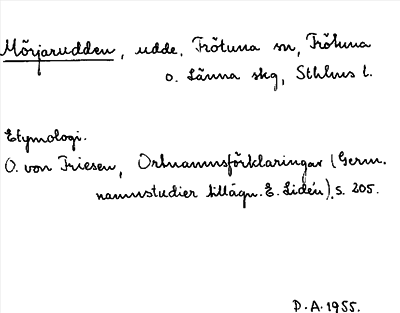 Mörjarudden, udde, Frötuna sn, Frötuna
o. Länna skg, Sthlms l.
Etymologi.
O. von Friesen, Ortnamnsförklaringar (Germ.
namnstudier tillägn. E. Lidén), s. 205.
D.A. 1955.